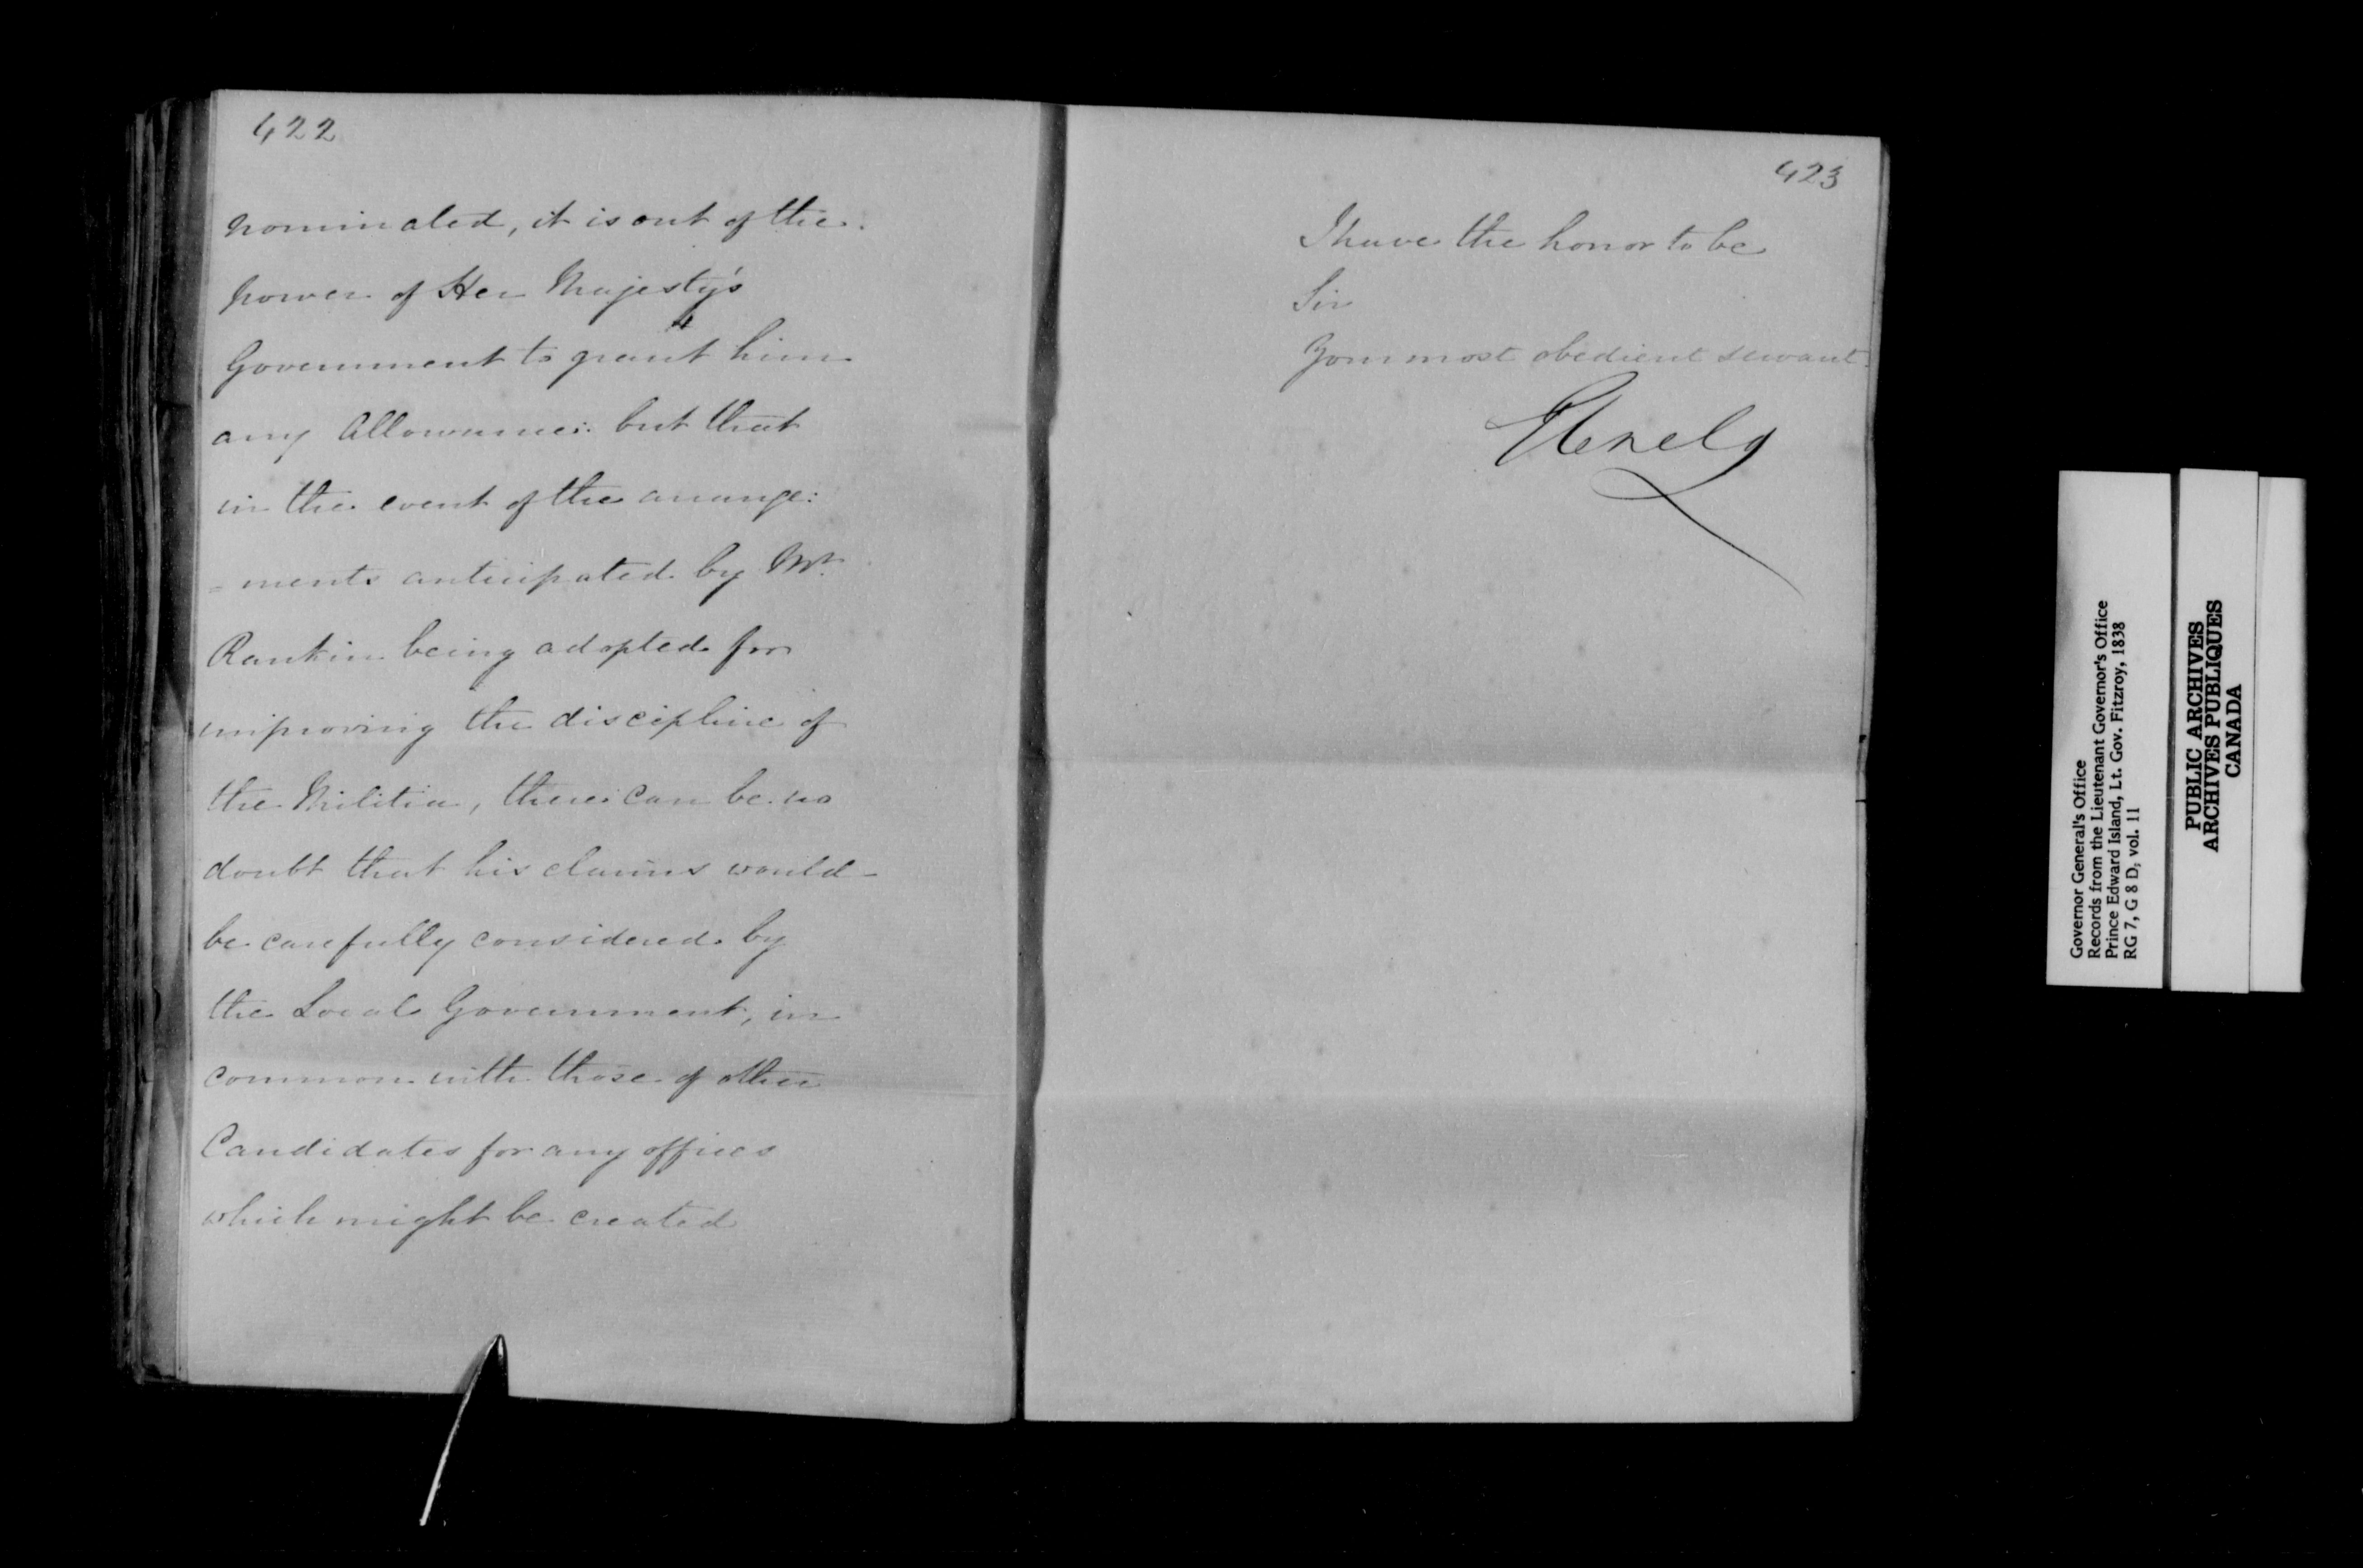 422
nominated, it is out of the
power of Her Majesty's
Government to grant him
any Allowance: but that
in the event of the arrange:
= ments anticipated by Mr.
Rankin being adopted for
improving the discipline of
the Militia, there can be no
doubt that his claims would
be carefully considered by
the Local Government, in
common with those of other
Candidates for any offices
which might be created
423
I have the honor to be
Sir
Your most obedient servant
Glenelg
Governor General's Office
Records from the Lieutenant Governor's Office
Prince Edward Island, Lt. Gov. Fitzroy, 1838
RG 7, G 8 D, vol. 11
PUBLIC ARCHIVES
ARCHIVES PUBLIQUES
CANADA